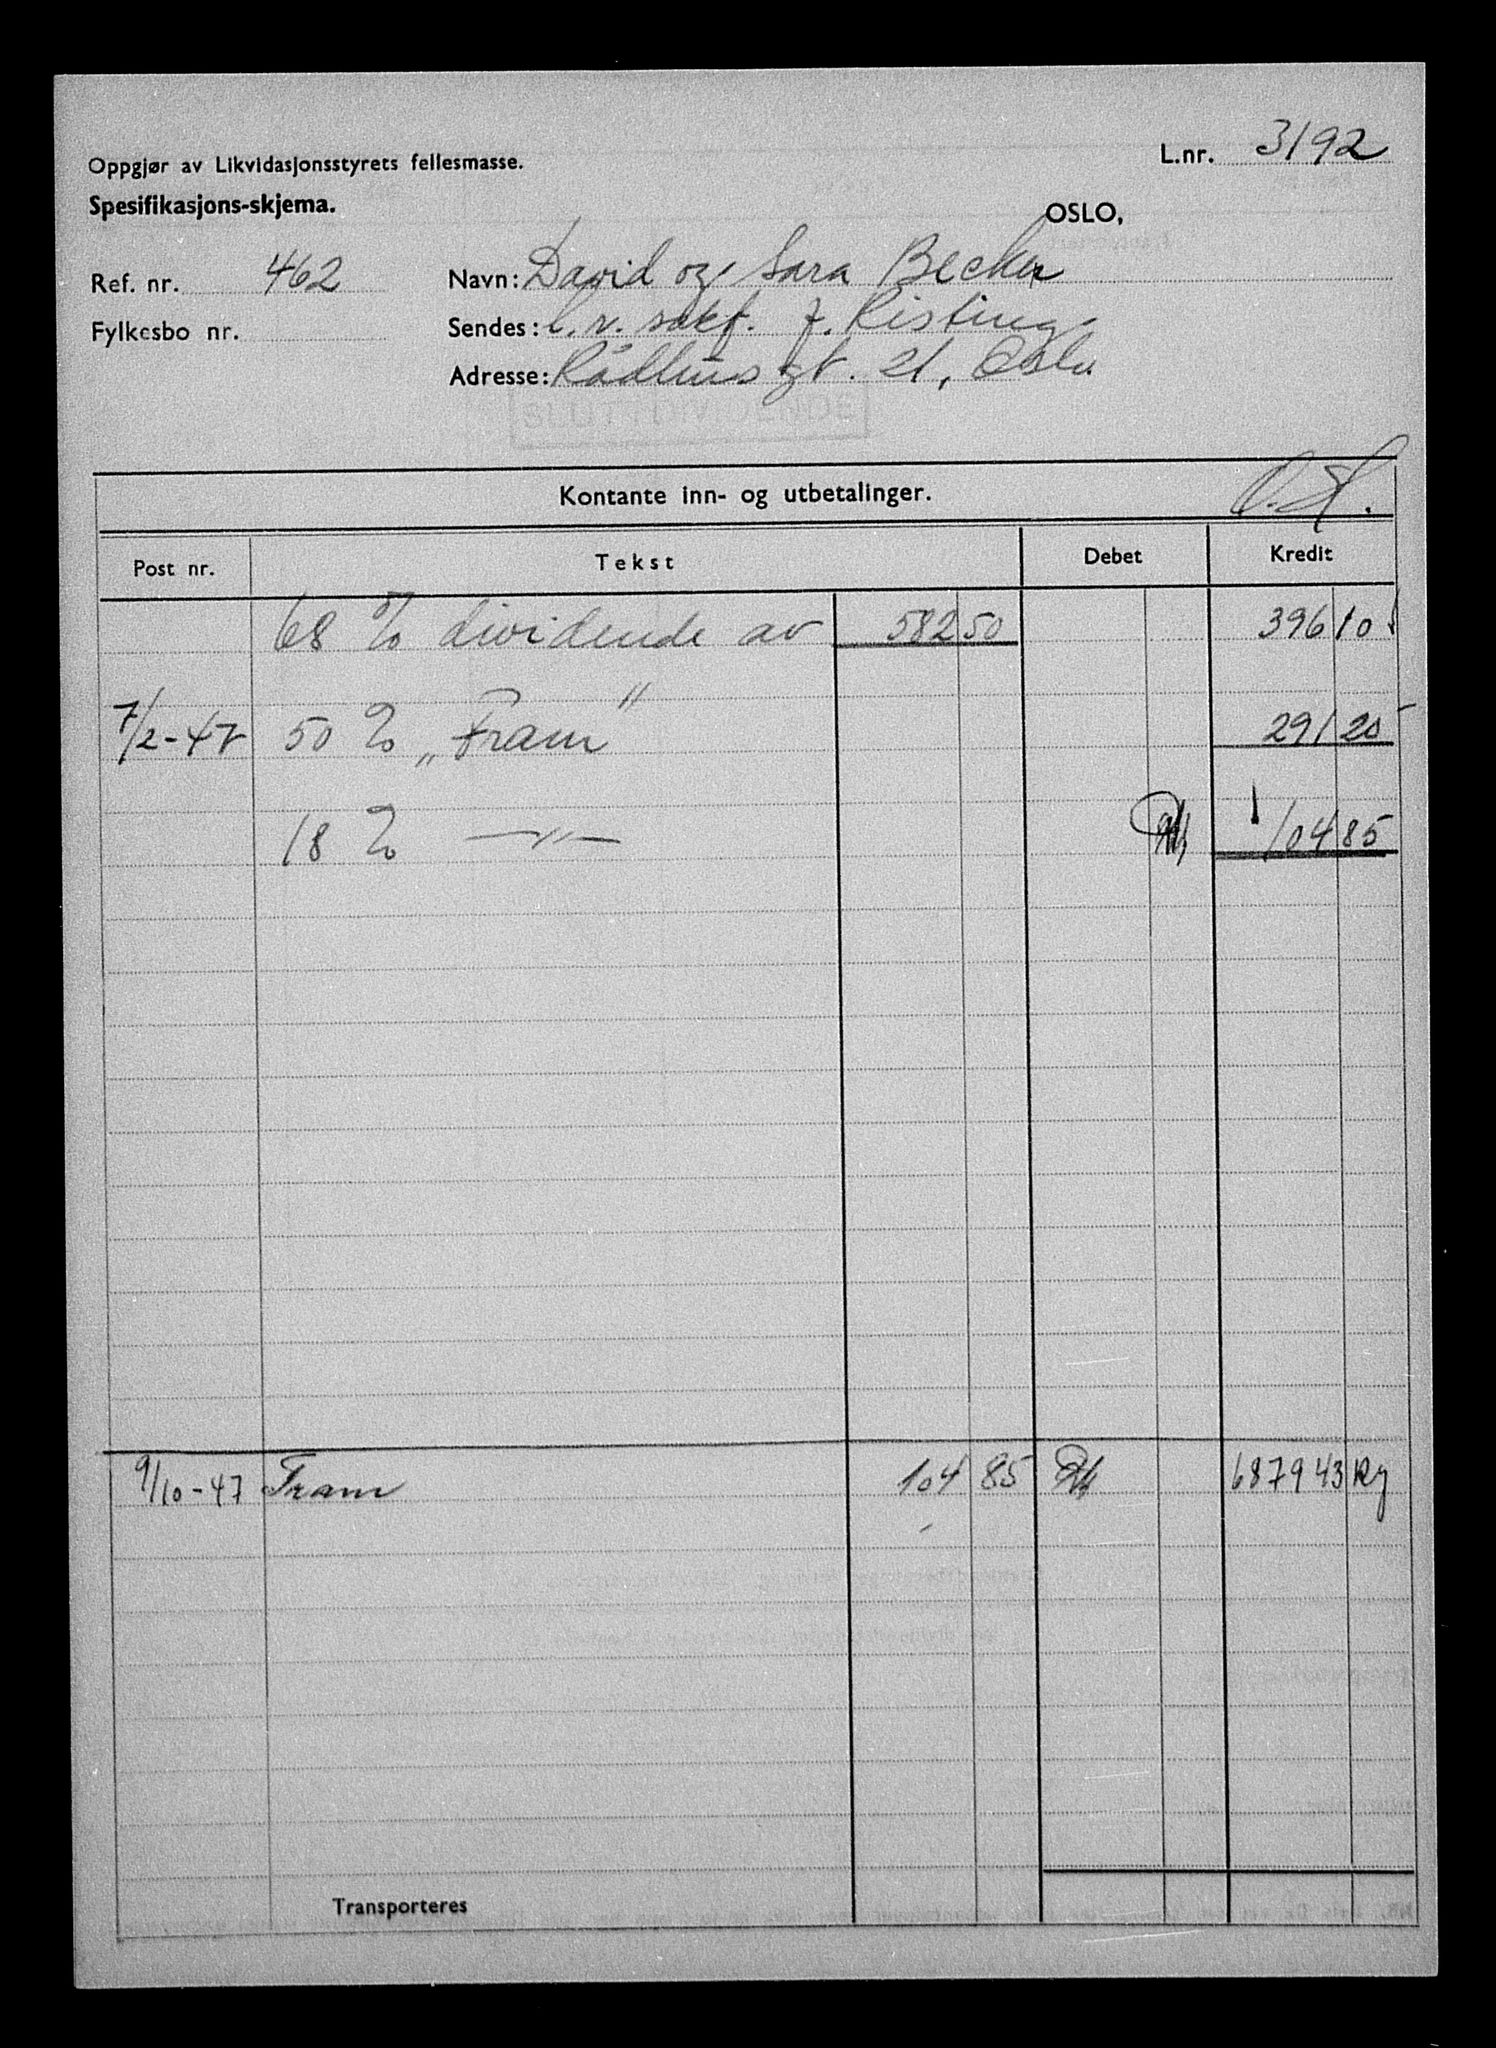 Oppgjør av Likvidasjonsstyrets fellesmasse.
L.nr. 3192
Spesifikasjons-skjema.
OSLO,
Ref. nr. 462
Navn: David og Sara Becker
Fylkesbo nr.
Sendes: l.r. sakf. J. Risting,
Adresse: Rådhusgt. 21, Oslo
SLUTTDIVIDENDE
Kontante inn- og utbetalinger.
Post nr. Tekst Debet Kredit
68 % dividende av 582 50 396 10
7/2-47 50 % „Fram" 291 20
18 % —"— 104 85
9/10-47 Fram 104 85 687943 Rg
Transporteres